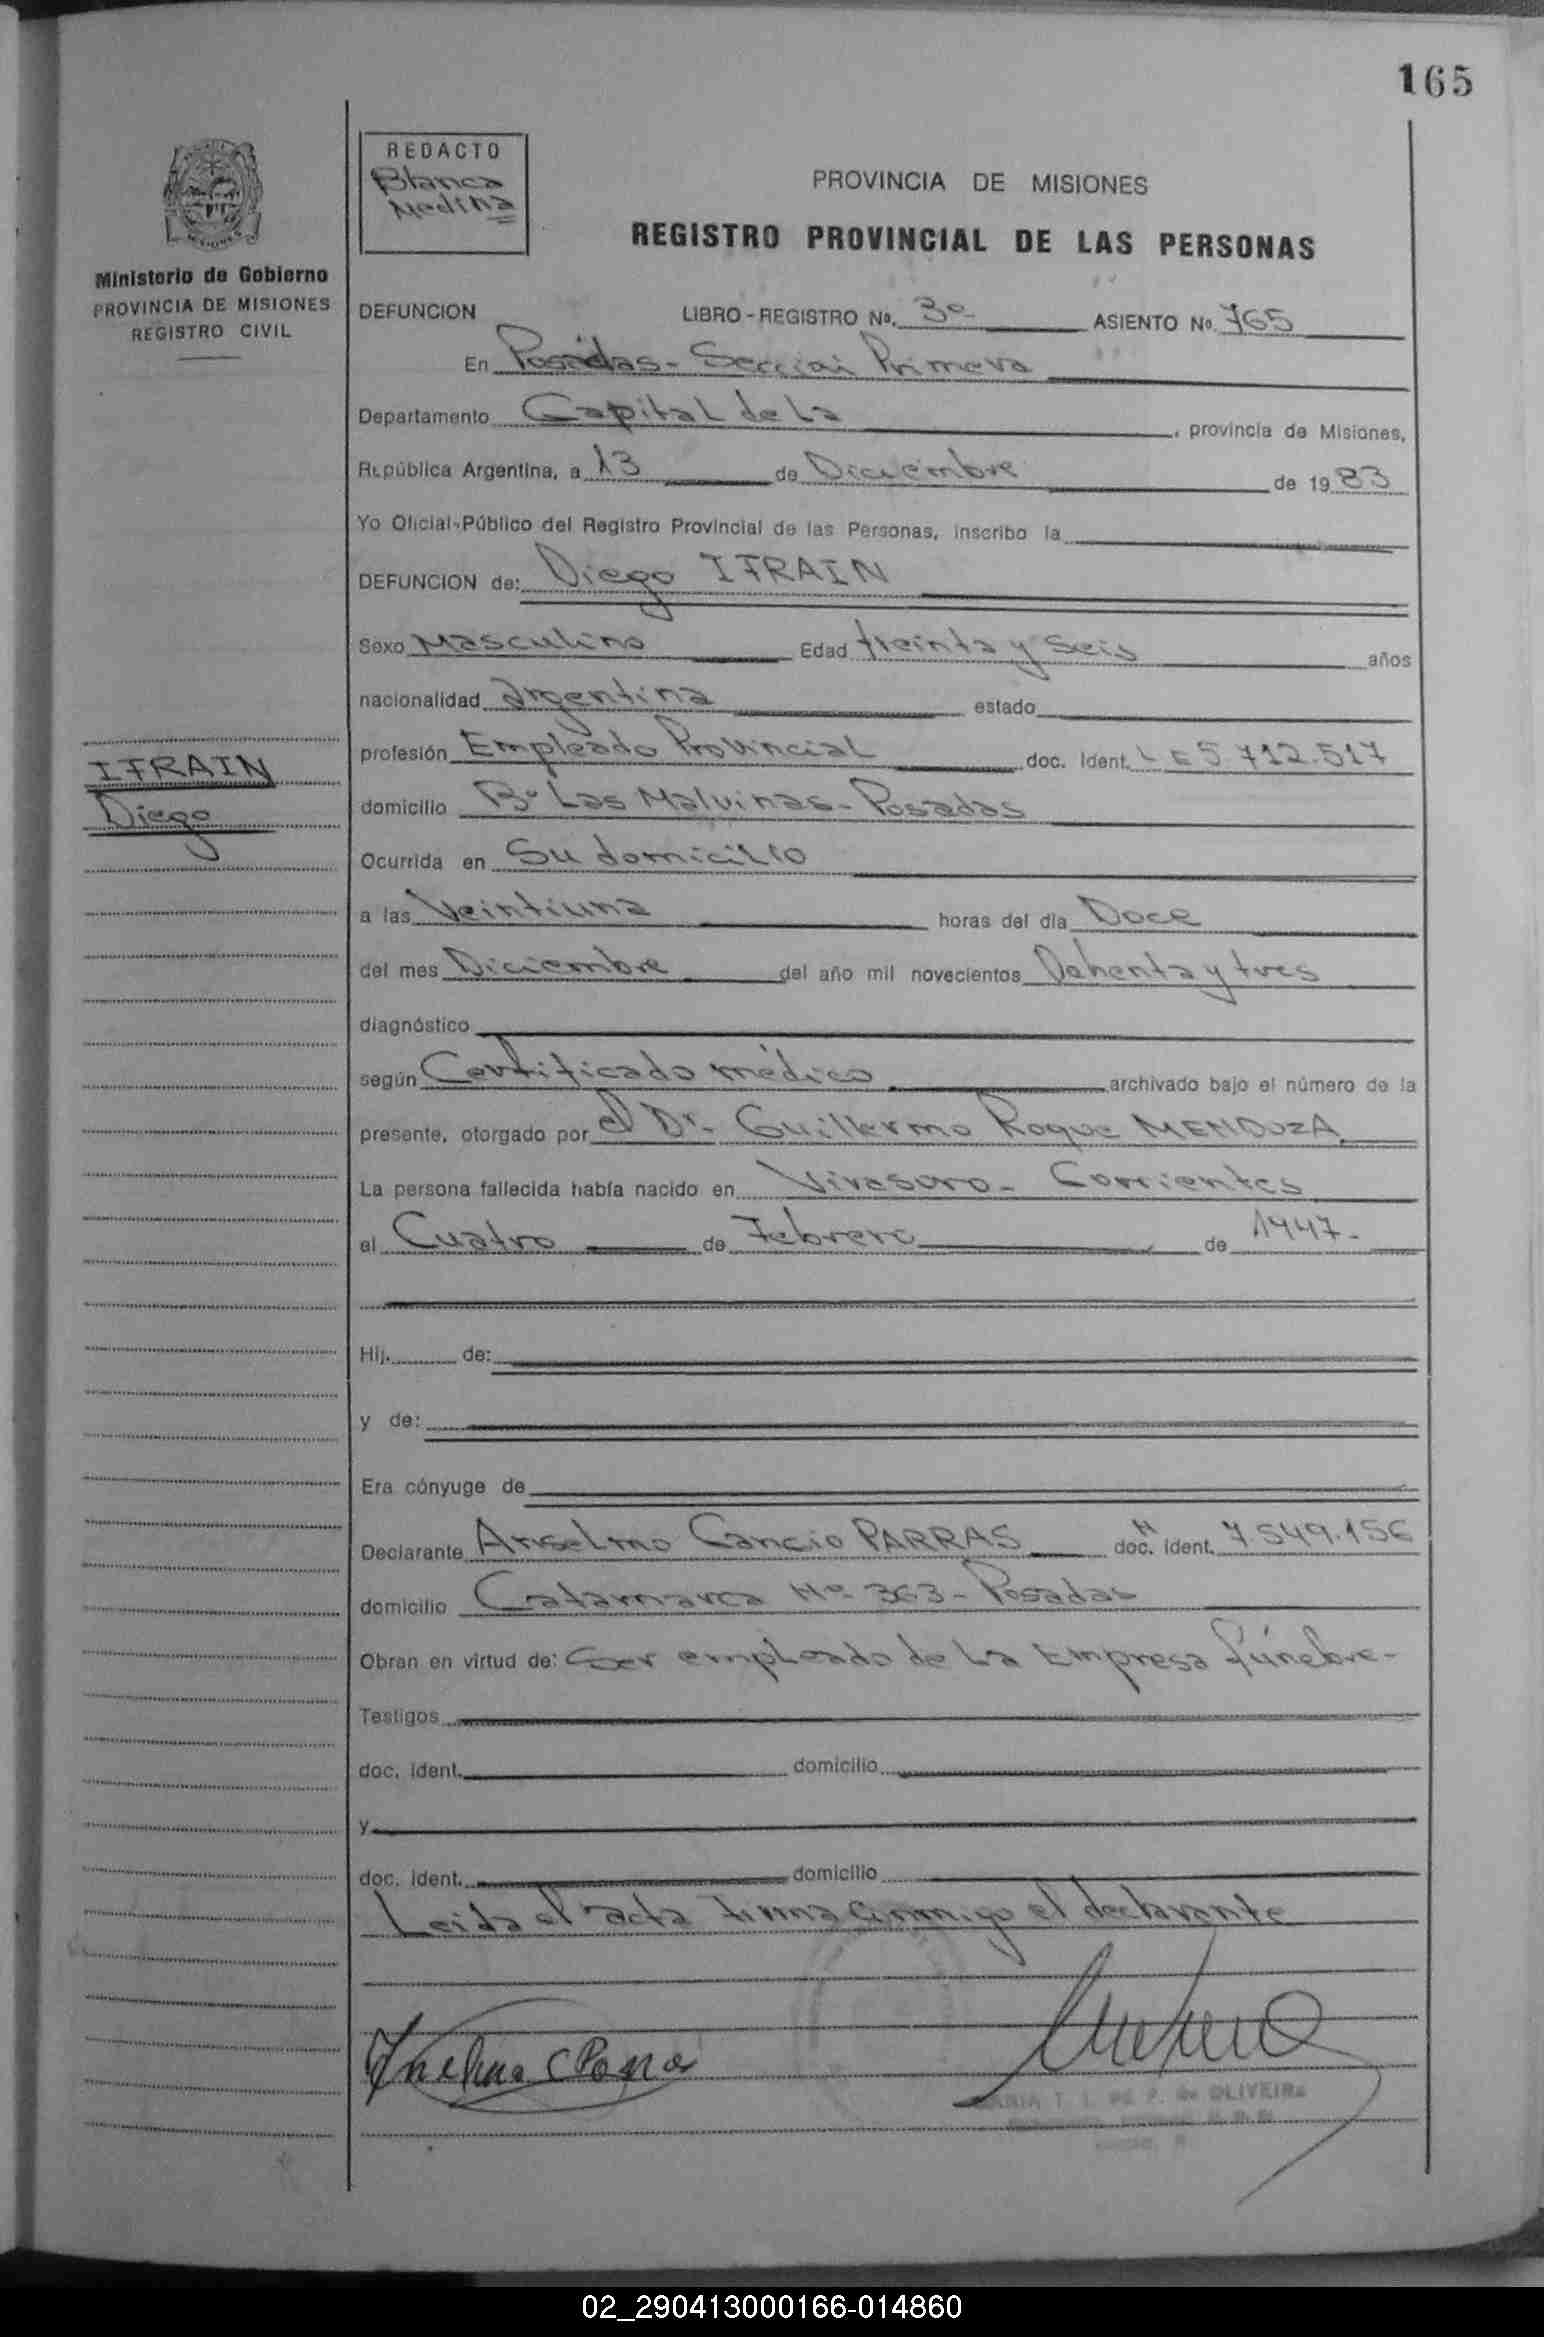 165
REDACTO
Blanca
Medina
PROVINCIA DE MISIONES
REGISTRO PROVINCIAL DE LAS PERSONAS
Ministerio de Gobierno
PROVINCIA DE MISIONES
REGISTRO CIVIL
DEFUNCION LIBRO - REGISTRO Nº. 3º ASIENTO Nº. 765
En Posadas - Sección Primera
Departamento Capital de la , provincia de Misiones,
República Argentina, a 13 de Diciembre de 1983
Yo Oficial-Público del Registro Provincial de las Personas, inscribo la
DEFUNCION de: Diego IFRAIN
Sexo Masculino Edad treinta y Seis años
nacionalidad argentina estado
profesión Empleado Provincial doc. Ident. L E 5.712.517
IFRAIN
Diego
domicilio Bº Las Malvinas - Posadas
Ocurrida en Su domicilio
a las Veintiuna horas del día Doce
del mes Diciembre del año mil novecientos Ochenta y tres
diagnóstico
según Certificado médico archivado bajo el número de la
presente, otorgado por el Dr. Guillermo Roque MENDOZA
La persona fallecida había nacido en Virasoro - Corrientes
el Cuatro de Febrero de 1947.-
Hij. de:
y de:
Era cónyuge de
Declarante Anselmo Cancio PARRAS doc. Ident. M 7.549.156
domicilio Catamarca Nº 363 - Posadas
Obran en virtud de: Ser empleado de la Empresa fúnebre -
Testigos
doc. Ident. domicilio
y
doc. Ident. domicilio
Leida el acta firma conmigo el declarante
MARIA T. I. DE P. de OLIVEIRA
02_290413000166-014860